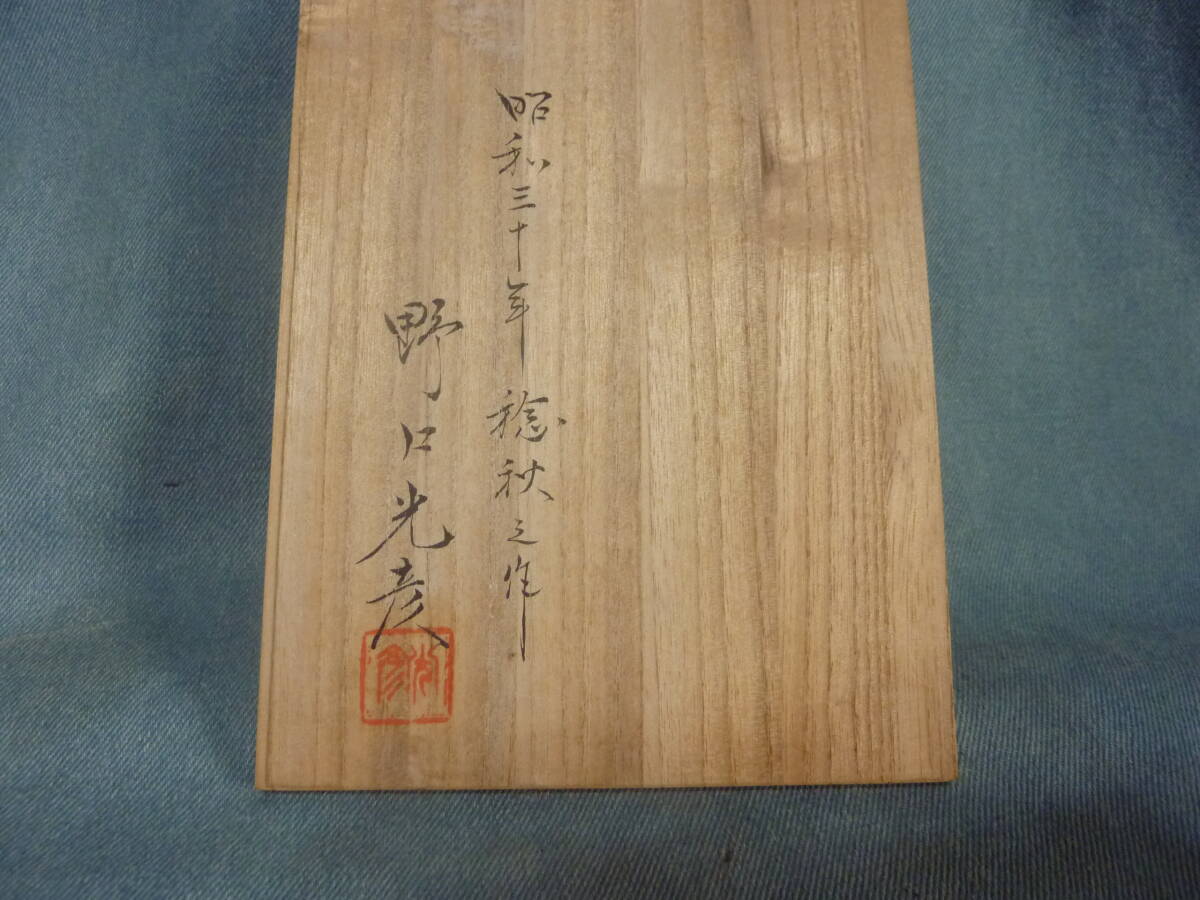 昭和三十年 稔秋之作
野口光彦
光彦